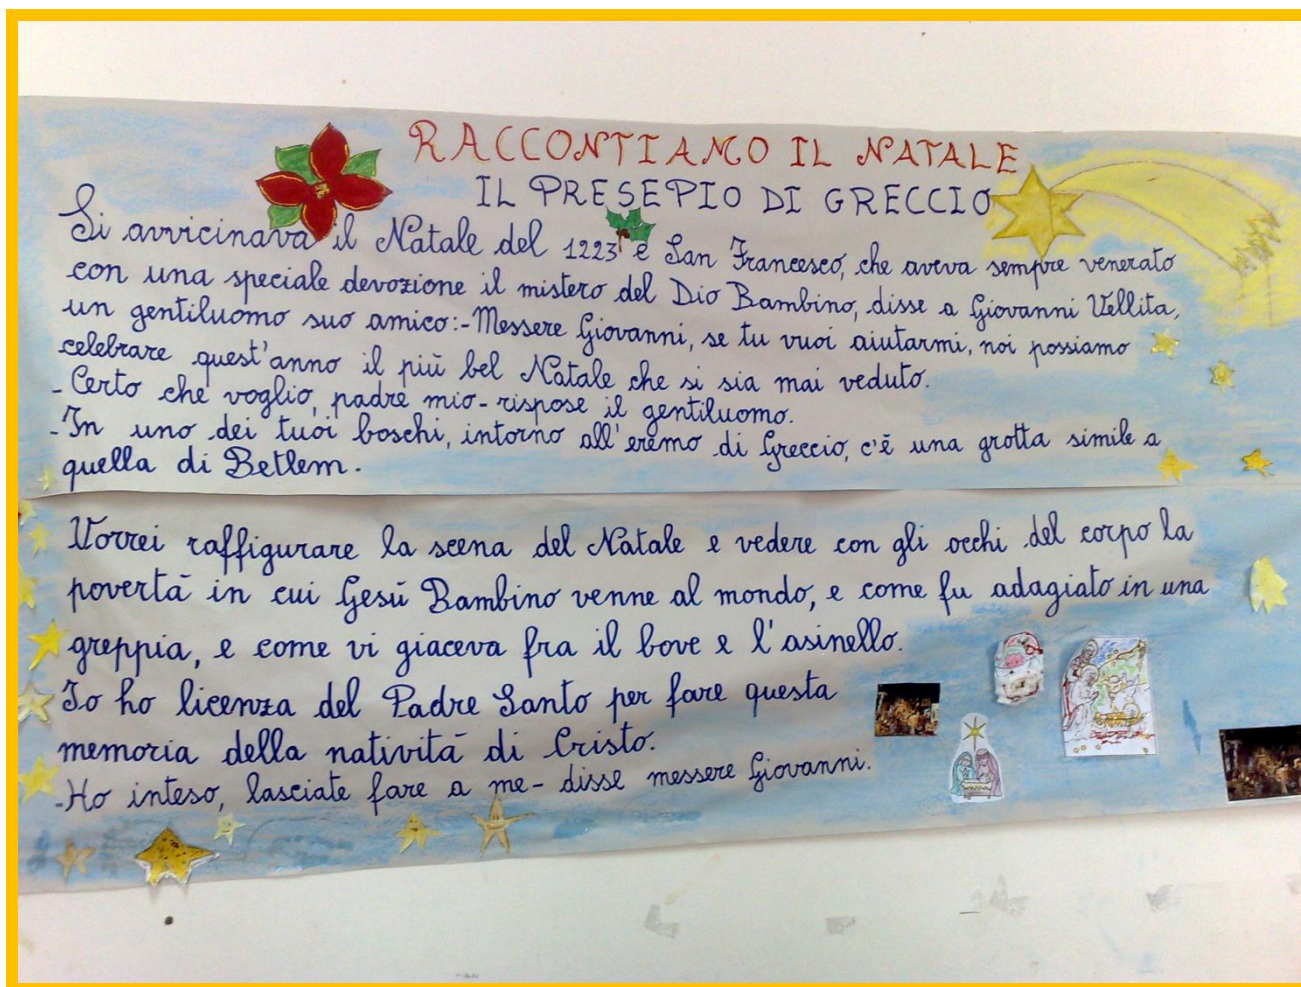 RACCONTIAMO IL NATALE
IL PRESEPIO DI GRECCIO
Si avvicinava il Natale del 1223 e San Francesco, che aveva sempre venerato
con una speciale devozione il mistero del Dio Bambino, disse a Giovanni Vellita,
un gentiluomo suo amico:-Messere Giovanni, se tu vuoi aiutarmi, noi possiamo
celebrare quest'anno il più bel Natale che si sia mai veduto.
-Certo che voglio, padre mio-rispose il gentiluomo.
-In uno dei tuoi boschi, intorno all'eremo di Greccio, c'è una grotta simile a
quella di Betlem.
Vorrei raffigurare la scena del Natale e vedere con gli occhi del corpo la
povertà in cui Gesù Bambino venne al mondo, e come fu adagiato in una
greppia, e come vi giaceva fra il bove e l'asinello.
Io ho licenza del Padre Santo per fare questa
memoria della natività di Cristo.
-Ho inteso, lasciate fare a me- disse messere Giovanni.